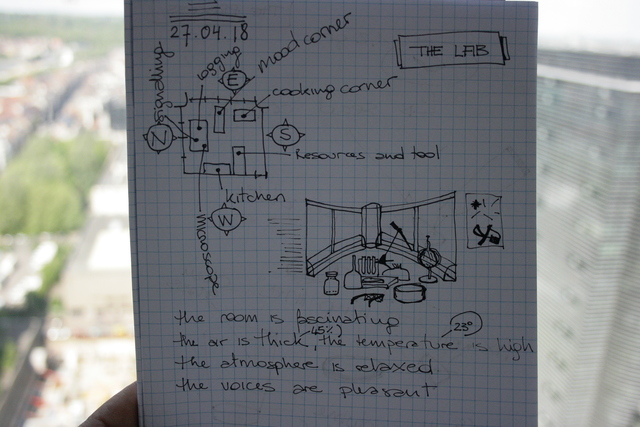 27.04.18
THE LAB
mood corner
logging
E
cooking corner
signalling
N
S
Resources and tool
kitchen
W
microscope
the room is fascinating
(45%)
23°
the air is thick, the temperature is high
the atmosphere is relaxed
the voices are pleasant